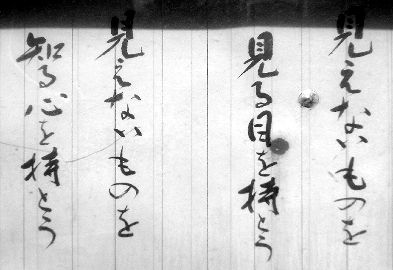 見えないものを
見る目を持とう
見えないものを
知る心を持とう